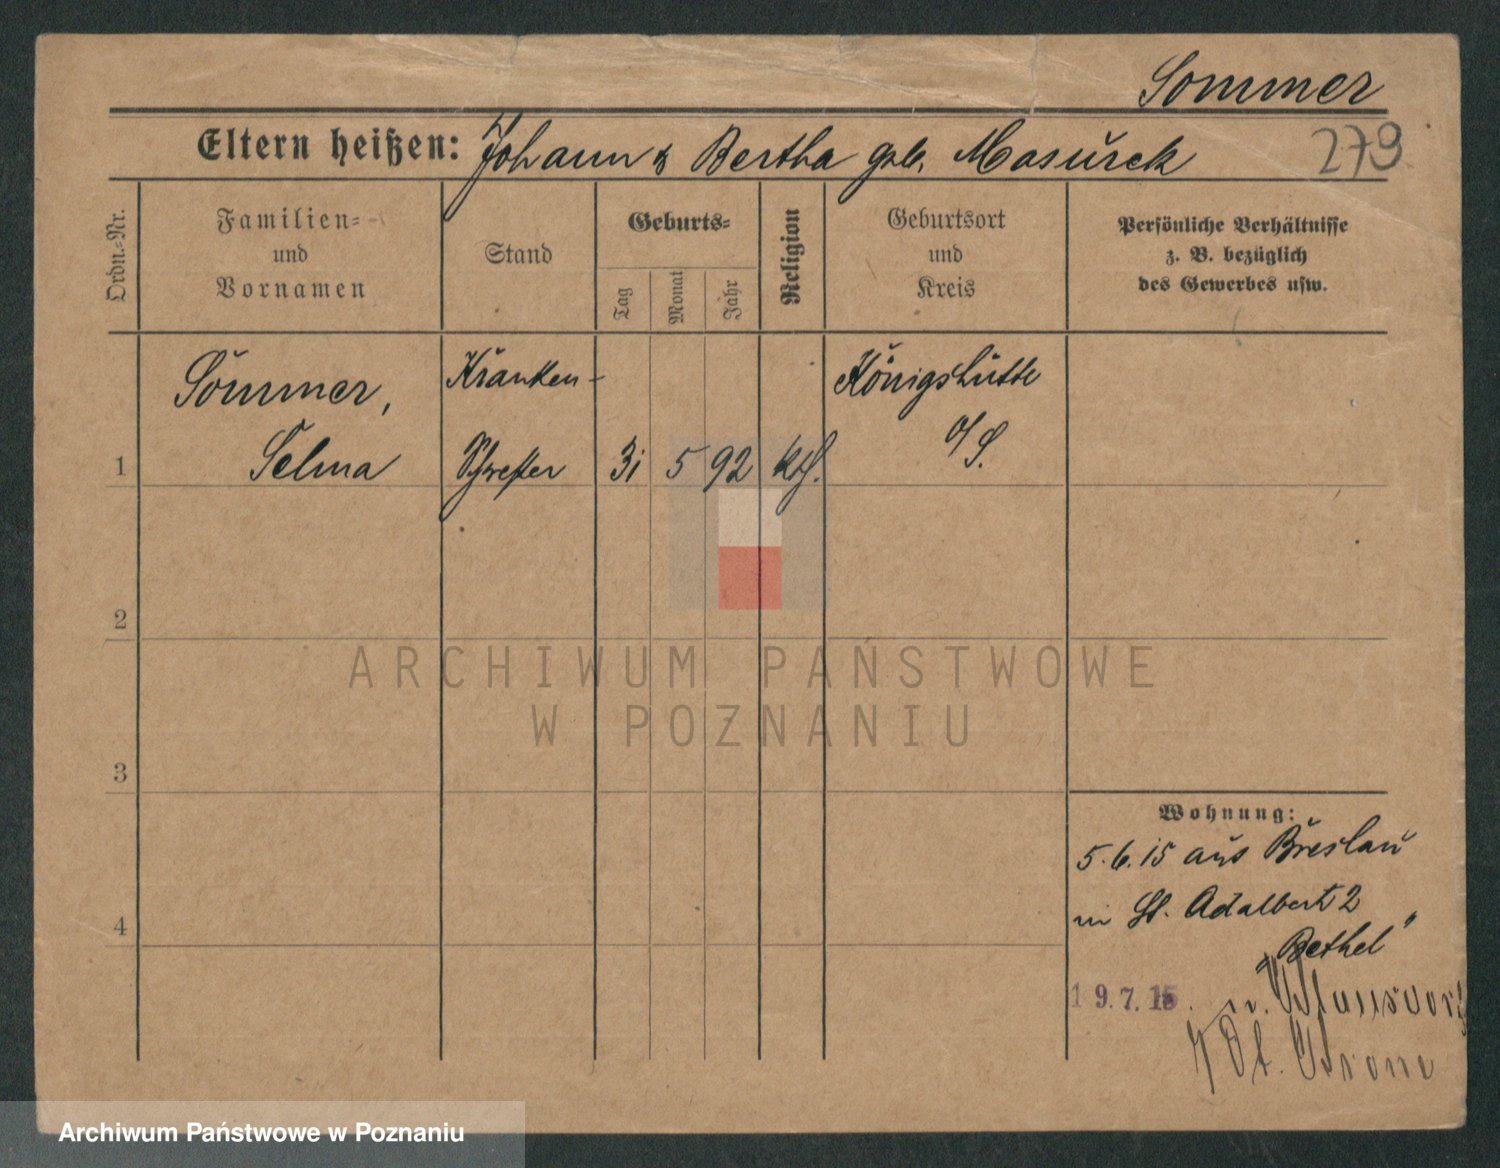 Sommer
Eltern heißen: Johann & Bertha geb. Masurek
279
Ordn.-Nr.
Familien-
und
Vornamen
Stand
Geburts-
Tag
Monat
Jahr
Religion
Geburtsort
und
Kreis
Persönliche Verhältnisse
z. B. bezüglich
des Gewerbes usw.
Sommer,
Kranken-
Königshütte
1
Selma
Schwester
31
5
92
kth.
O/S.
2
3
4
Wohnung:
5.6.15 aus Breslau
in St. Adalbert 2
"Bethel"
19.7.15. n.
Dt. Krone
ARCHIWUM PAŃSTWOWE
W POZNANIU
Archiwum Państwowe w Poznaniu